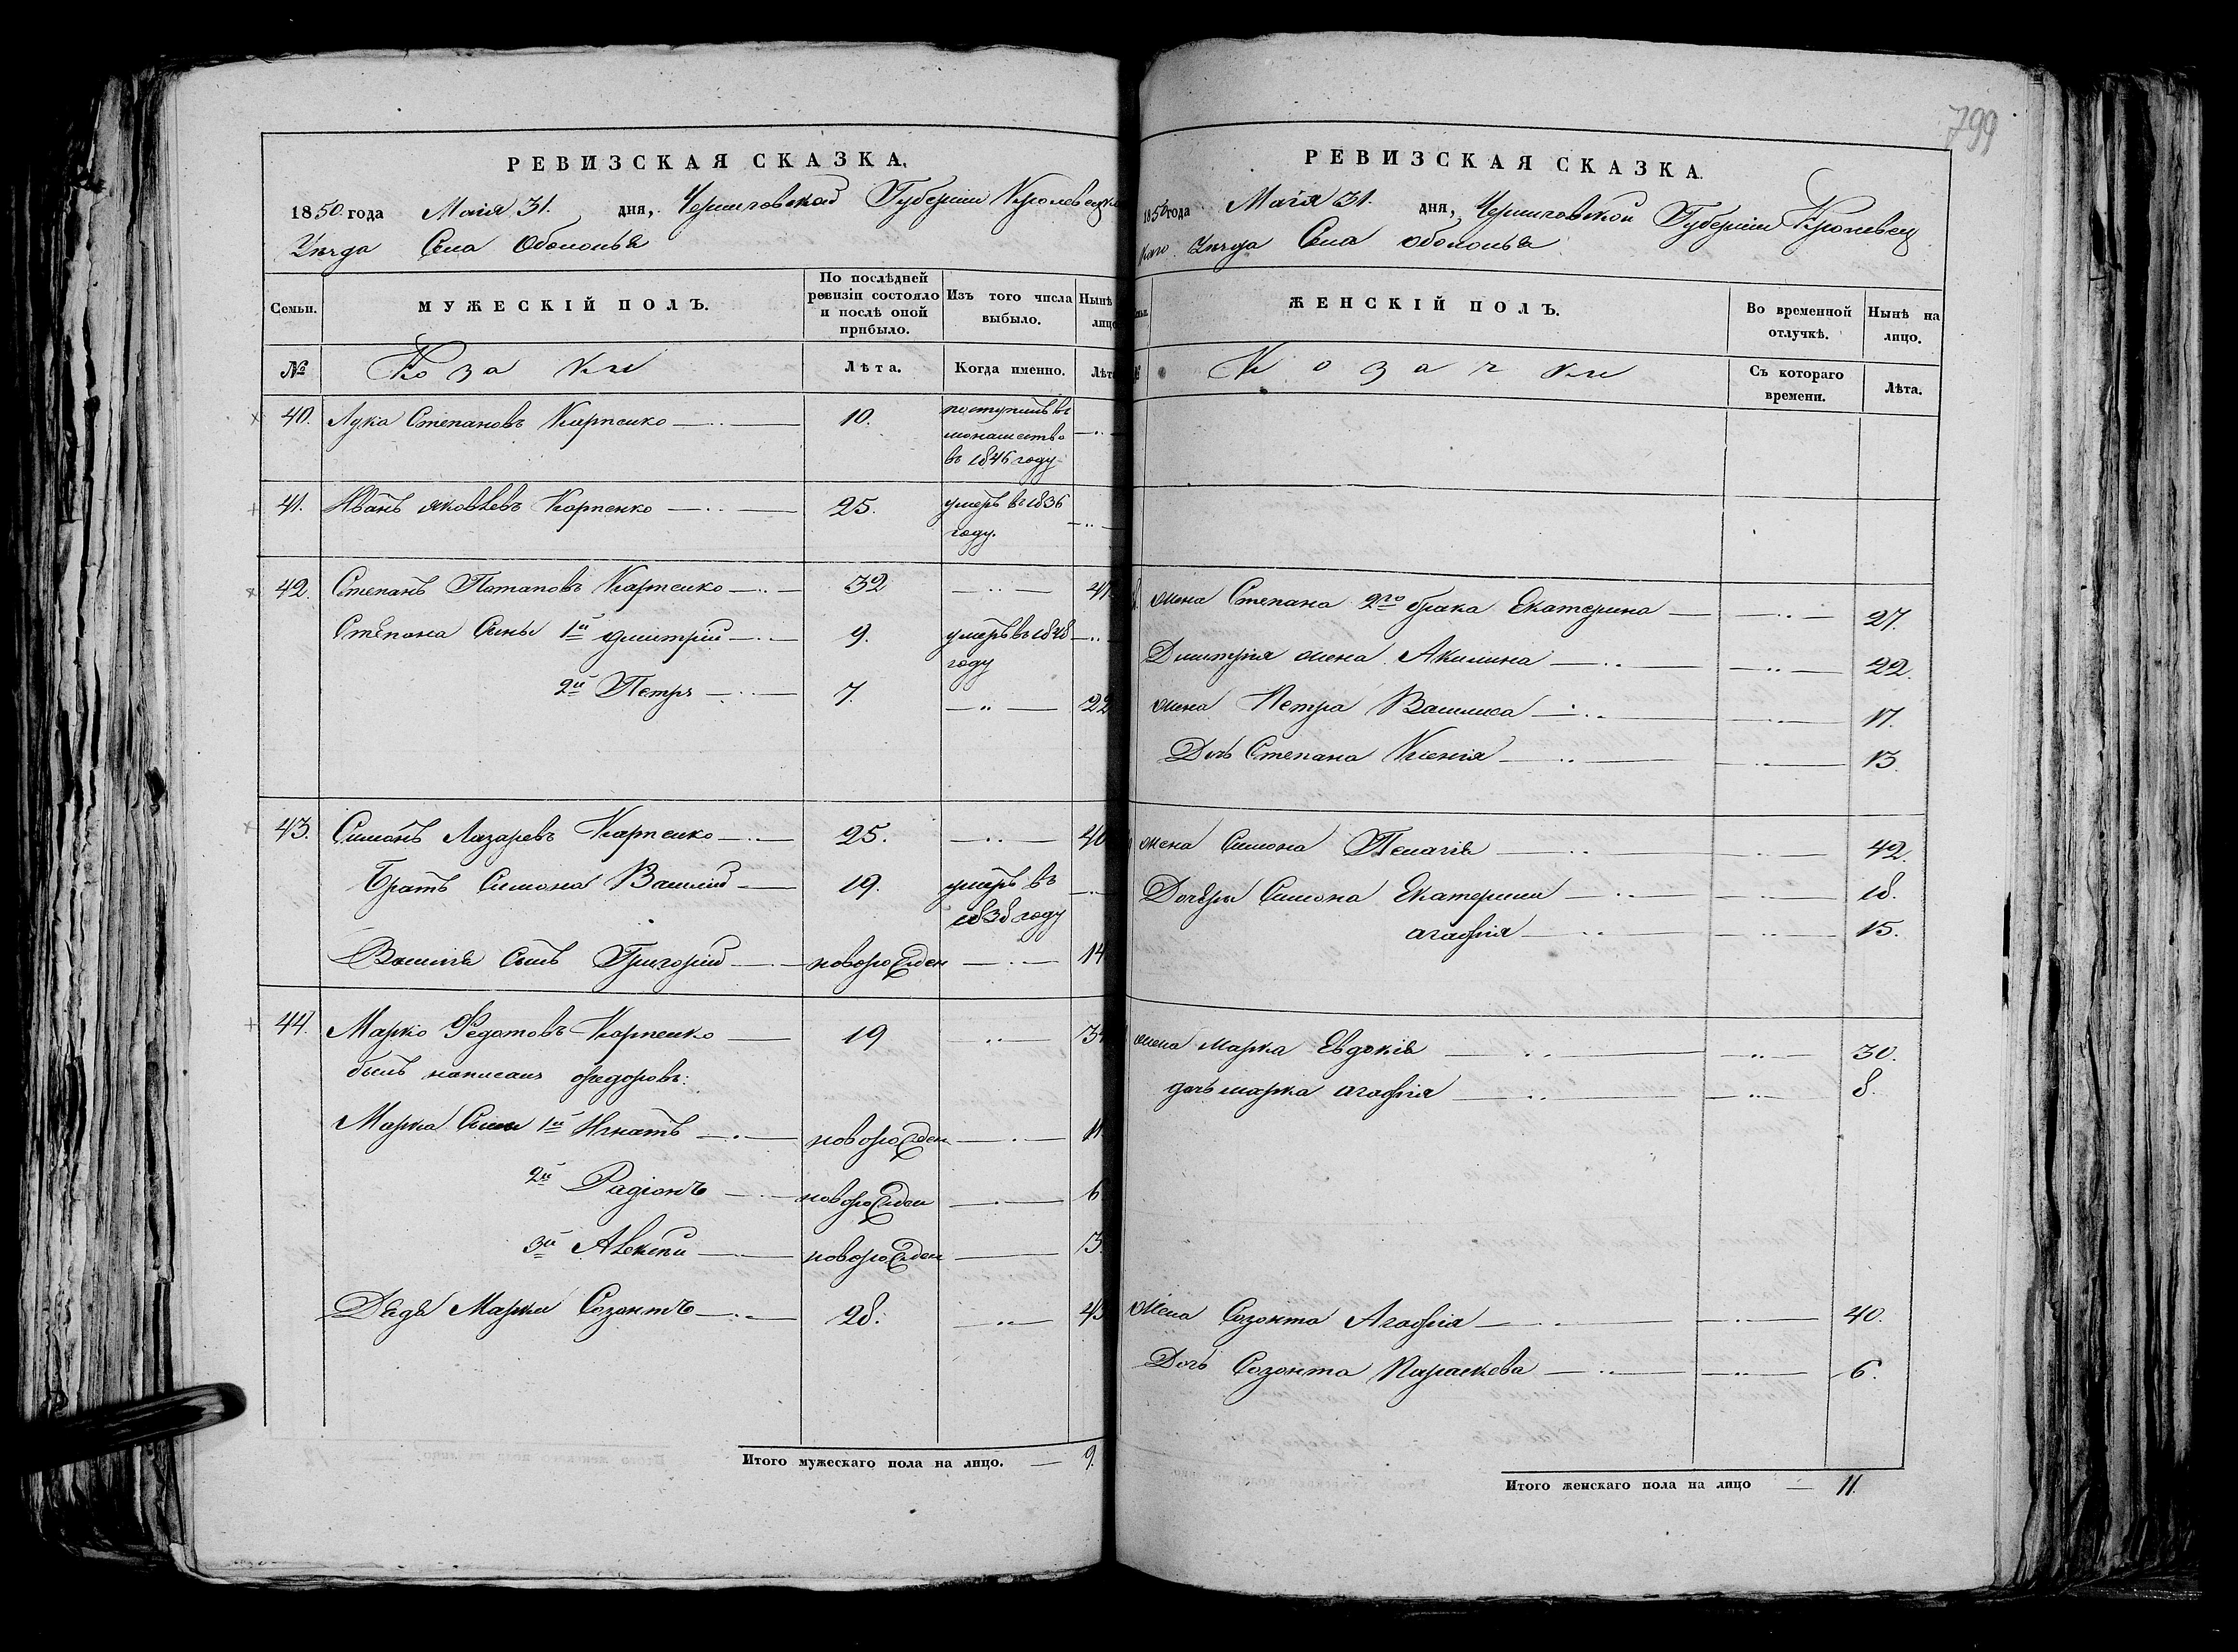 799
РЕВИЗСКАЯ СКАЗКА.
1850 года Маія 31. дня, Черниговской Губерніи Кролевецка
Уезда Села Оболонья
Семьи. МУЖЕСКІЙ ПОЛЪ. По послѣдней ревизіи состояло и послѣ оной прибыло. Изъ того числа выбыло. Нынѣ лицо
№ Козаки Лѣта. Когда именно. Лѣта
40. Лука Степановъ Карпенко 10. поступилъ въ
монашество
въ 1846 году
41. Иванъ яковлевъ Карпенко 25. умеръ въ 1836
году.
42. Степанъ Потаповъ Карпенко 32 47
Степана Сыны 1й дмитрій 9. умеръ въ 1848
году
2й Петръ 7. 22
43. Симонъ Лазаревъ Карпенко 25. 40
Братъ Симона Василій 19. умеръ въ
1838 году
Василія сынъ Григорій новорожден 14
44. Марко Федотовъ Карпенко 19 34
былъ написанъ федоровъ:
Марка Сыны 1й Игнатъ новорожден 11
2й Радіонъ новорожден 6
3й Алексѣй новорожден 3.
Дядя Марка Созонтъ 28. 43
Итого мужескаго пола на лицо. — 9.
РЕВИЗСКАЯ СКАЗКА.
1850 года Маія 31. дня, Черниговской Губерніи Кролевец
каго Уезда Села Оболонья
ЖЕНСКІЙ ПОЛЪ. Во временной отлучкѣ. Нынѣ на лицо.
Козачки Съ котораго времени. Лѣта.
жена Степана 2го брака Екатерина 27.
Дмитрія жена Акилина 22.
жена Петра Василиса 17.
Дочь Степана Ксенія 13.
жена Симона Пелагія 42.
Дочери Симона Екатерина 18.
агафія 15.
жена марка Евдокія 30.
дочь марка агафія 8.
жена Созонта Агафія 40.
Дочь Созонта Параскева 6.
Итого женскаго пола на лицо — 11.